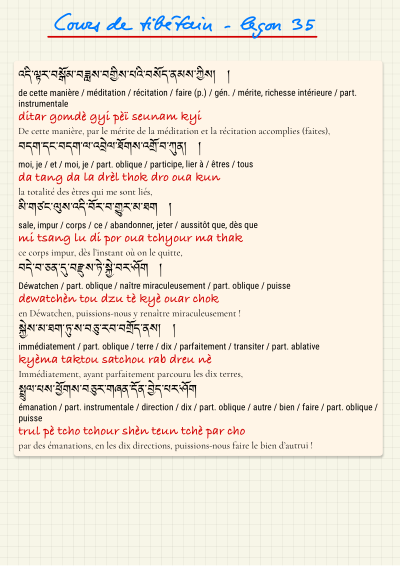 Cours de tibétain - leçon 35
འདི་ལྟར་བསྒོམ་བཟླས་བགྱིས་པའི་བསོད་ནམས་ཀྱིས། །
de cette manière / méditation / récitation / faire (p.) / gén. / mérite, richesse intérieure / part.
instrumentale
ditar gomdè gyi pèi seunam kyi
De cette manière, par le mérite de la méditation et la récitation accomplies (faites),
བདག་དང་བདག་ལ་འབྲེལ་ཐོགས་འགྲོ་བ་ཀུན། །
moi, je / et / moi, je / part. oblique / participe, lier à / êtres / tous
da tang da la drèl thok dro oua kun
la totalité des êtres qui me sont liés,
མི་གཙང་ལུས་འདི་བོར་བ་གྱུར་མ་ཐག །
sale, impur / corps / ce / abandonner, jeter / aussitôt que, dès que
mi tsang lu di por oua tchyour ma thak
ce corps impur, dès l'instant où on le quitte,
བདེ་བ་ཅན་དུ་བརྫུས་ཏེ་སྐྱེ་བར་ཤོག །
Déwatchen / part. oblique / naître miraculeusement / part. oblique / puisse
dewatchèn tou dzu tè kyè ouar chok
en Déwatchen, puissions-nous y renaître miraculeusement !
སྐྱེས་མ་ཐག་ཏུ་ས་བཅུ་རབ་བགྲོད་ནས། །
immédiatement / part. oblique / terre / dix / parfaitement / transiter / part. ablative
kyèma taktou satchou rab dreu nè
Immédiatement, ayant parfaitement parcouru les dix terres,
སྤྲུལ་པས་ཕྱོགས་བཅུར་གཞན་དོན་བྱེད་པར་ཤོག
émanation / part. instrumentale / direction / dix / part. oblique / autre / bien / faire / part. oblique /
puisse
trul pè tcho tchour shèn teun tchè par cho
par des émanations, en les dix directions, puissions-nous faire le bien d'autrui !